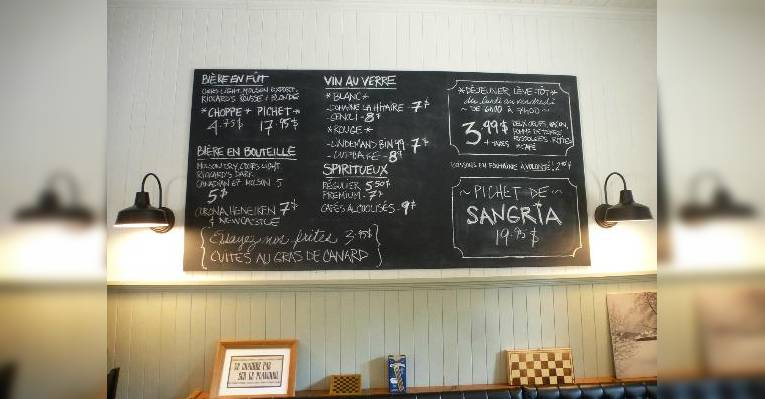 BIÈRE EN FÛT
COORS LIGHT, MOLSON EXPORT,
RICKARD'S ROUSSE & BLONDE
*CHOPPE* PICHET*
4.75$ 17.95$
BIÈRE EN BOUTEILLE
MOLSON DRY, COORS LIGHT
RICKARD'S DARK
CANADIAN ET MOLSON
5$
CORONA, HEINEKEN 7$
& NEWCASTLE
Essayez nos frites 3.95$
CUITES AU GRAS DE CANARD
VIN AU VERRE
*BLANC*
- DOMAINE LA HITAIRE - 7$
- CENOLI - 8$
*ROUGE*
- LINDEMAND BIN 99 - 7$
- CUPCAKE - 8$
SPIRITUEUX
RÉGULIER 5.50$
PREMIUM - 7$
CAFÉS ALCOOLISÉS - 9$
*DÉJEUNER LÈVE-TÔT*
du lundi au vendredi
~ DE 6H00 À 7H00 ~
3.99$
+ TAXES
DEUX OEUFS, BACON,
POMMES DE TERRE
RISSOLÉES, RÔTIES
& CAFÉ
BOISSONS EN FONTAINE À VOLONTÉ!
~ PICHET DE ~
SANGRIA
19.95$